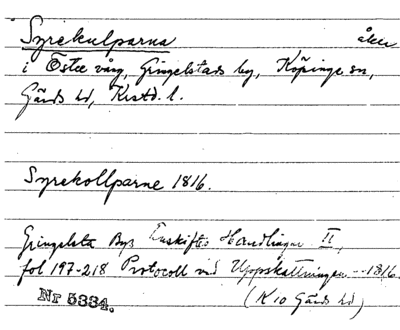 Syrekulparna åker
i Östre vång, Gringelstads by, Köpinge sn,
Gärds hd, Krstd. l.
Syrekollparne 1816.
Gringelsta Bys Enskiftes Handlingar II,
fol 197-218 Protocoll vid Uppskattningen --- 1816
(K 10 Gärds hd)
Nr 5334.